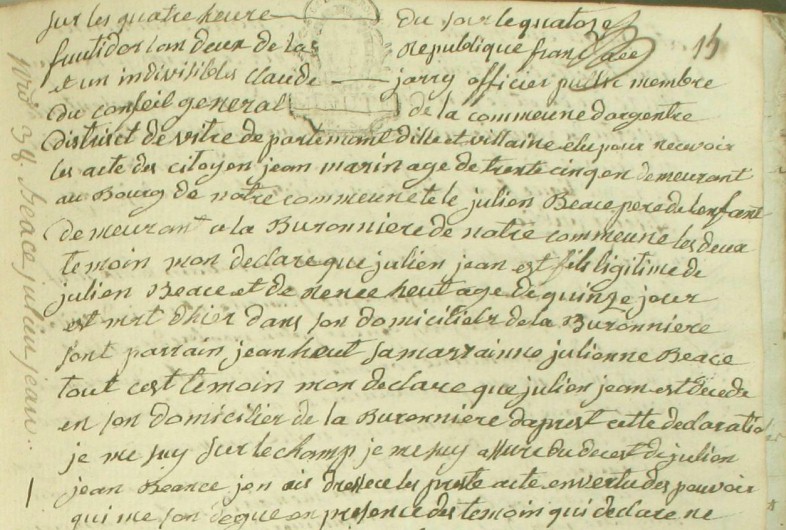 sur les quatre heure du jour le quatorze
fructidor lan deux de la Republique française 15
et un indivisibles Claude jarry officier public membre
du conseil general de la commeune dargentre
District de vitre departement dille et villaine elu pour recevoir
les acte des citoyen jean marin age de trente cinq en demeurant
au Bourg de notre commeune et le julien Beace pere de lenfant
demeurant a la Buronniere de notre commeune les deux
temoin mon declare que julien jean est fils ligitime de
julien Beace et de Renee heut age de quinze jour
est mrt dhier dans son domicilier de la Buronniere
sont parrain jean heut sa marrainne julienne Beace
tout cest temoin mon declare que julien jean est decede
en son domicilier de la Buronniere daprest cette declaratio
je me suy sur le champ je me suy assure du decest de julien
jean Beance jen ais dressece les preste acte en vertu des pouvoir
qui me son degue en presence des temoin qui declare ne
nro 38 Beace julien jean